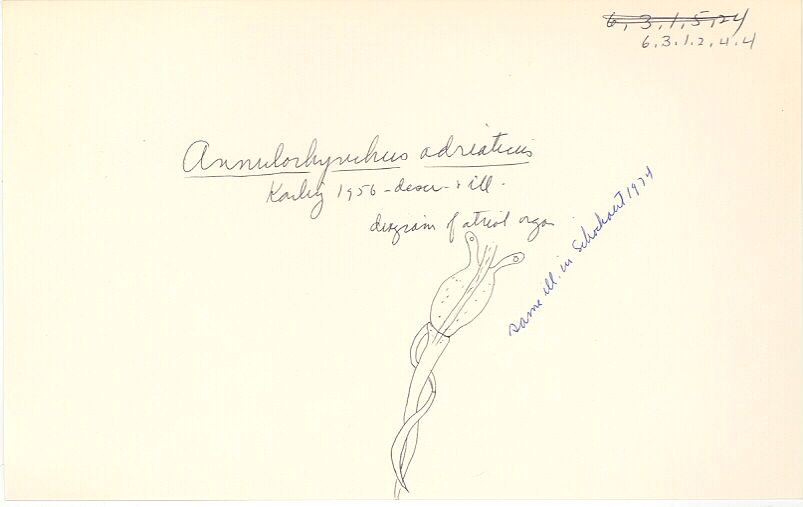 6.3.1.5.24
6.3.1.2.4.4
Annulorhynchus adriaticus
Karling 1956 - descr. & ill.
diagram of atrial orga
same ill. in Schockaert 1974